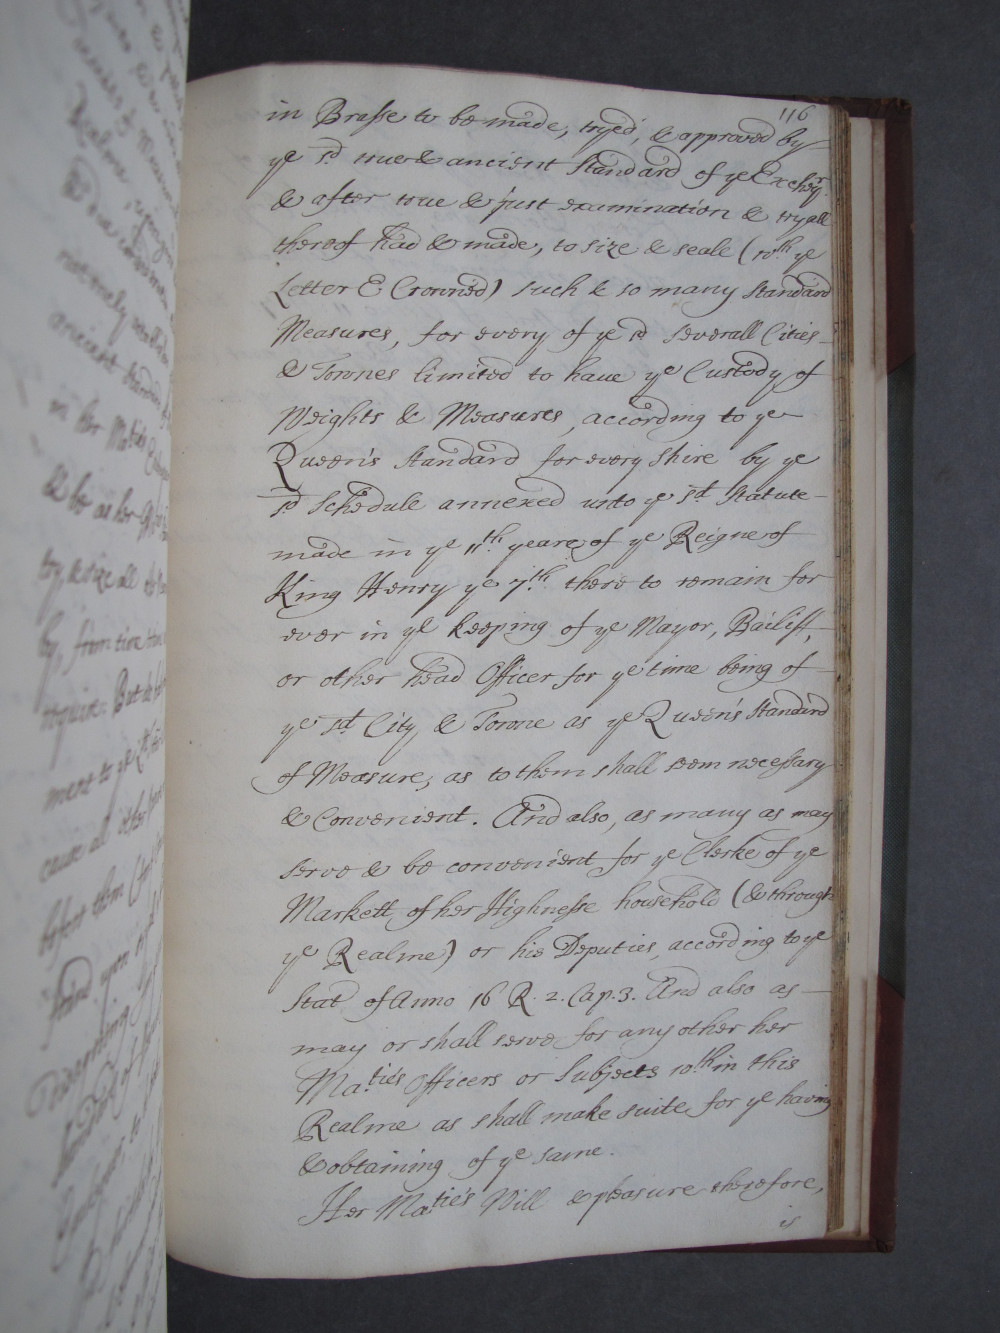 116
in Brasse to be made, tryed, & approved by
ye sd true & ancient Standard of ye Excheqr.
& after true & just examination & tryall
thereof had & made, to size & seale (wth ye
Letter E Crowned) such & so many Standard
Measures, for every of ye sd severall Cities
& Townes limited to have ye Custody of
Weights & Measures, according to ye
Queen's Standard for every shire by ye
sd Schedule annexed unto ye sd Statute
made in ye 11th yeare of ye Reigne of
King Henry ye 7th there to remain for
ever in ye keeping of ye Mayor, Bailiff,
or other head Officer for ye time being of
ye sd City, & Towne as ye Queen's Standard
of Measure, as to them shall seem necessary
& Convenient. And also, as many as may
serve & be convenient for ye Clerke of ye
Markett, of her Highnesse household (& through
ye Realme) or his Deputies, according to ye
Stat of Anno 16 R. 2. Cap. 3. And also as
may or shall serve for any other her
Matie's Officers or Subjects wthin this
Realme as shall make suite for ye having
& obtaining of ye same.
Her Matie's Will & pleasure therefore,
is